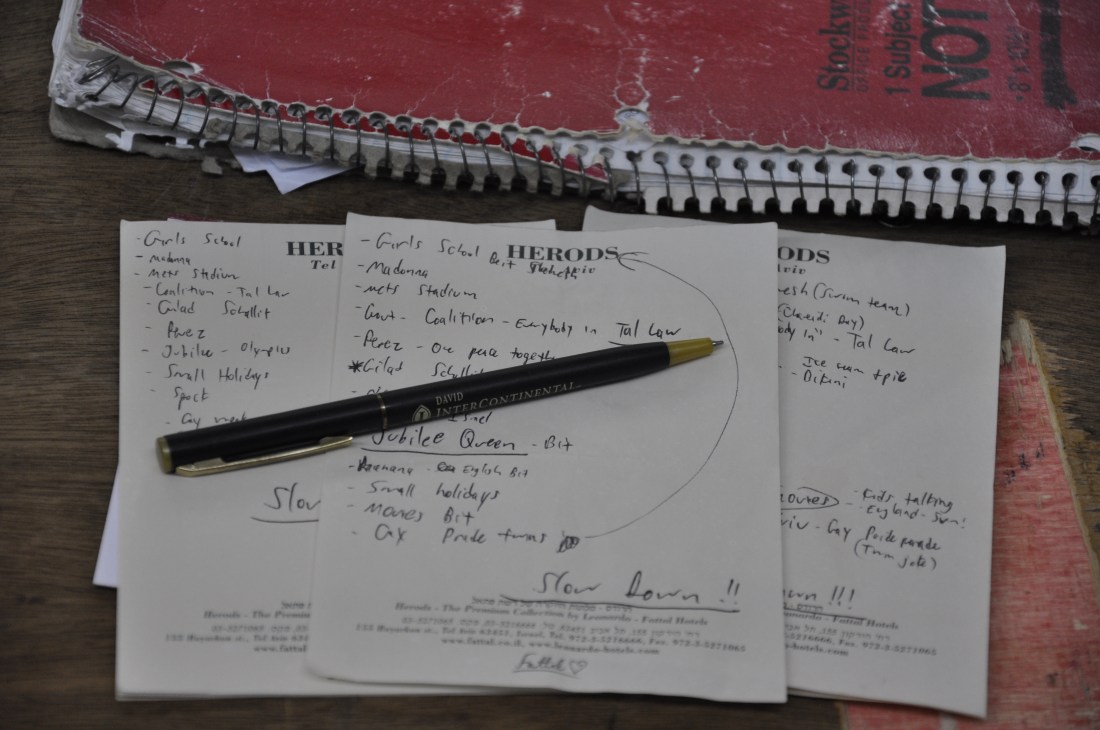 Stockw
1 Subject
NOT
- Girls School
HER
- Madonna
Tel
- Mets Stadium
- Coalition - Tal Law
- Gilad Schallit
- Perez
- Jubilee - Olympics
- Small Holidays
- Sport
- Gay
Slow
Herods - The Premium
www.fattal
- Girls School Beit
HERODS
Aviv
- Madonna
- Mets Stadium
- Govt - Coalition - Everybody in Tal Law
- Perez - One peace together
*Gilad Schallit
DAVID
INTERCONTINENTAL
Jubilee Queen - Bit
- Banana - English Bit
- Small holidays
- Movies Bit
- Gay Pride
Slow Down !!
Herods - The Premium Collection by Leonardo - Fattal Hotels
155 Hayarkon st., Tel Aviv 63453, Israel, Tel. 972-3-5216666, Fax. 972-3-5271065
www.fattal.co.il, www.leonardo-hotels.com
Fattal ♡
ODS
Aviv
esh (Swim team)
ody in" - Tal Law
Ice cream
- Bikini
- Kids talking
- England - Swim!
viv - Gay Pride parade
own !!!
- Fattal Hotels
Tel. 972-3-5216666, Fax. 972-3-5271065
-hotels.com